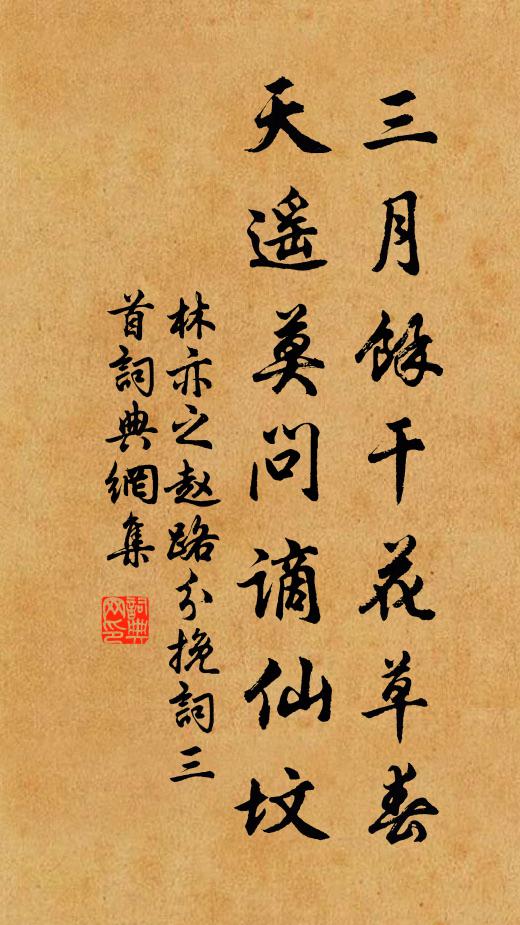 三月餘干花草春
天遥莫问谪仙坟
林亦之赵路分挽詞三
首詞典網集
詞典
网印